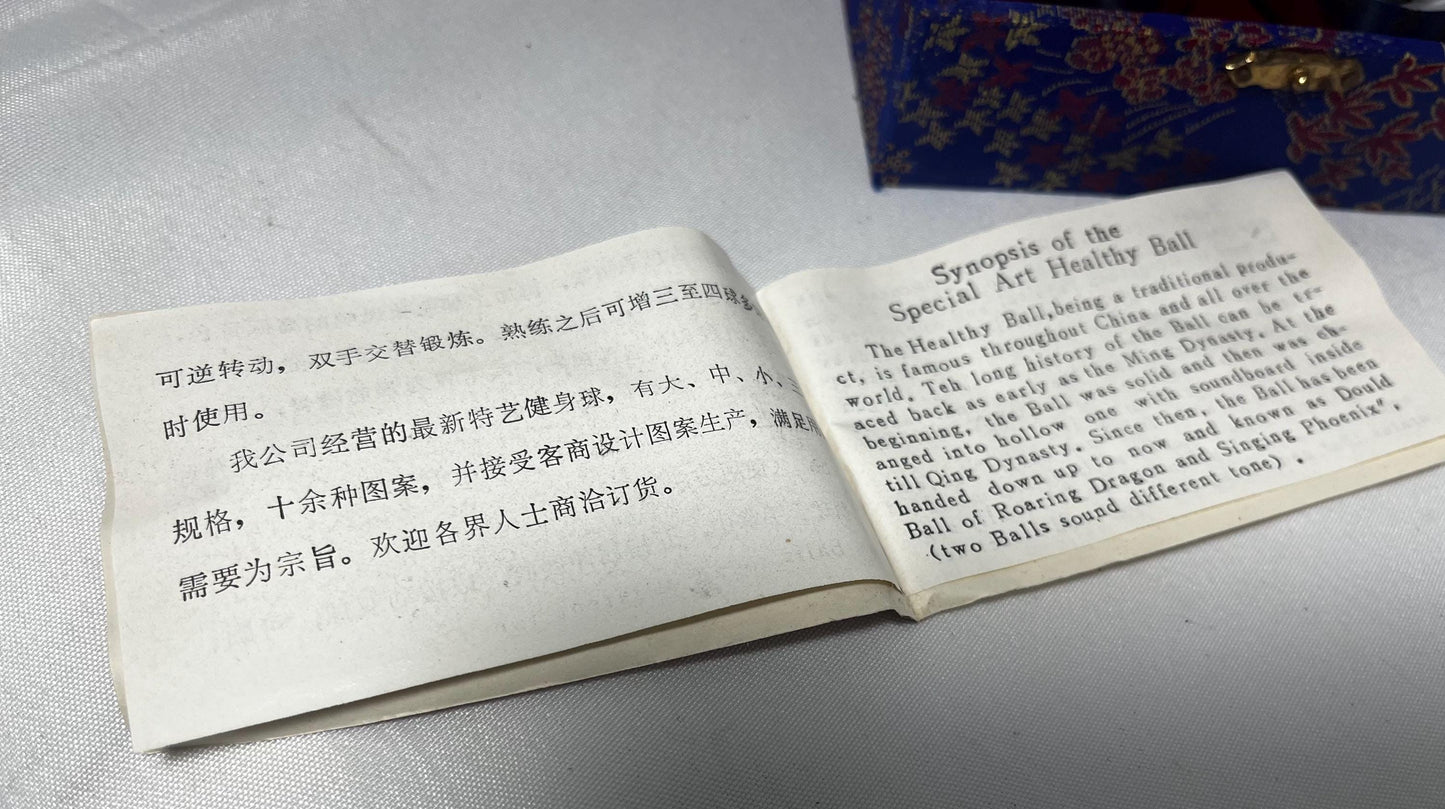 可逆转动，双手交替锻炼。熟练之后可增三至四球多
时使用。
我公司经营的最新特艺健身球，有大、中、小、三
规格，十余种图案，并接受客商设计图案生产，满足
需要为宗旨。欢迎各界人士商洽订货。
Synopsis of the
Special Art Healthy Ball
The Healthy Ball,being a traditional produ=
ct, is famous throughout China and all over the
world. Teh long history of the Ball can be tr=
aced back as early as the Ming Dynasty. At the
beginning, the Ball was solid and then was ch=
anged into hollow one with soundboard inside
till Qing Dynasty. Since then, the Ball has been
handed down up to now and known as Dould
Ball of Roaring Dragon and Singing Phoenix",
(two Balls sound different tone) .